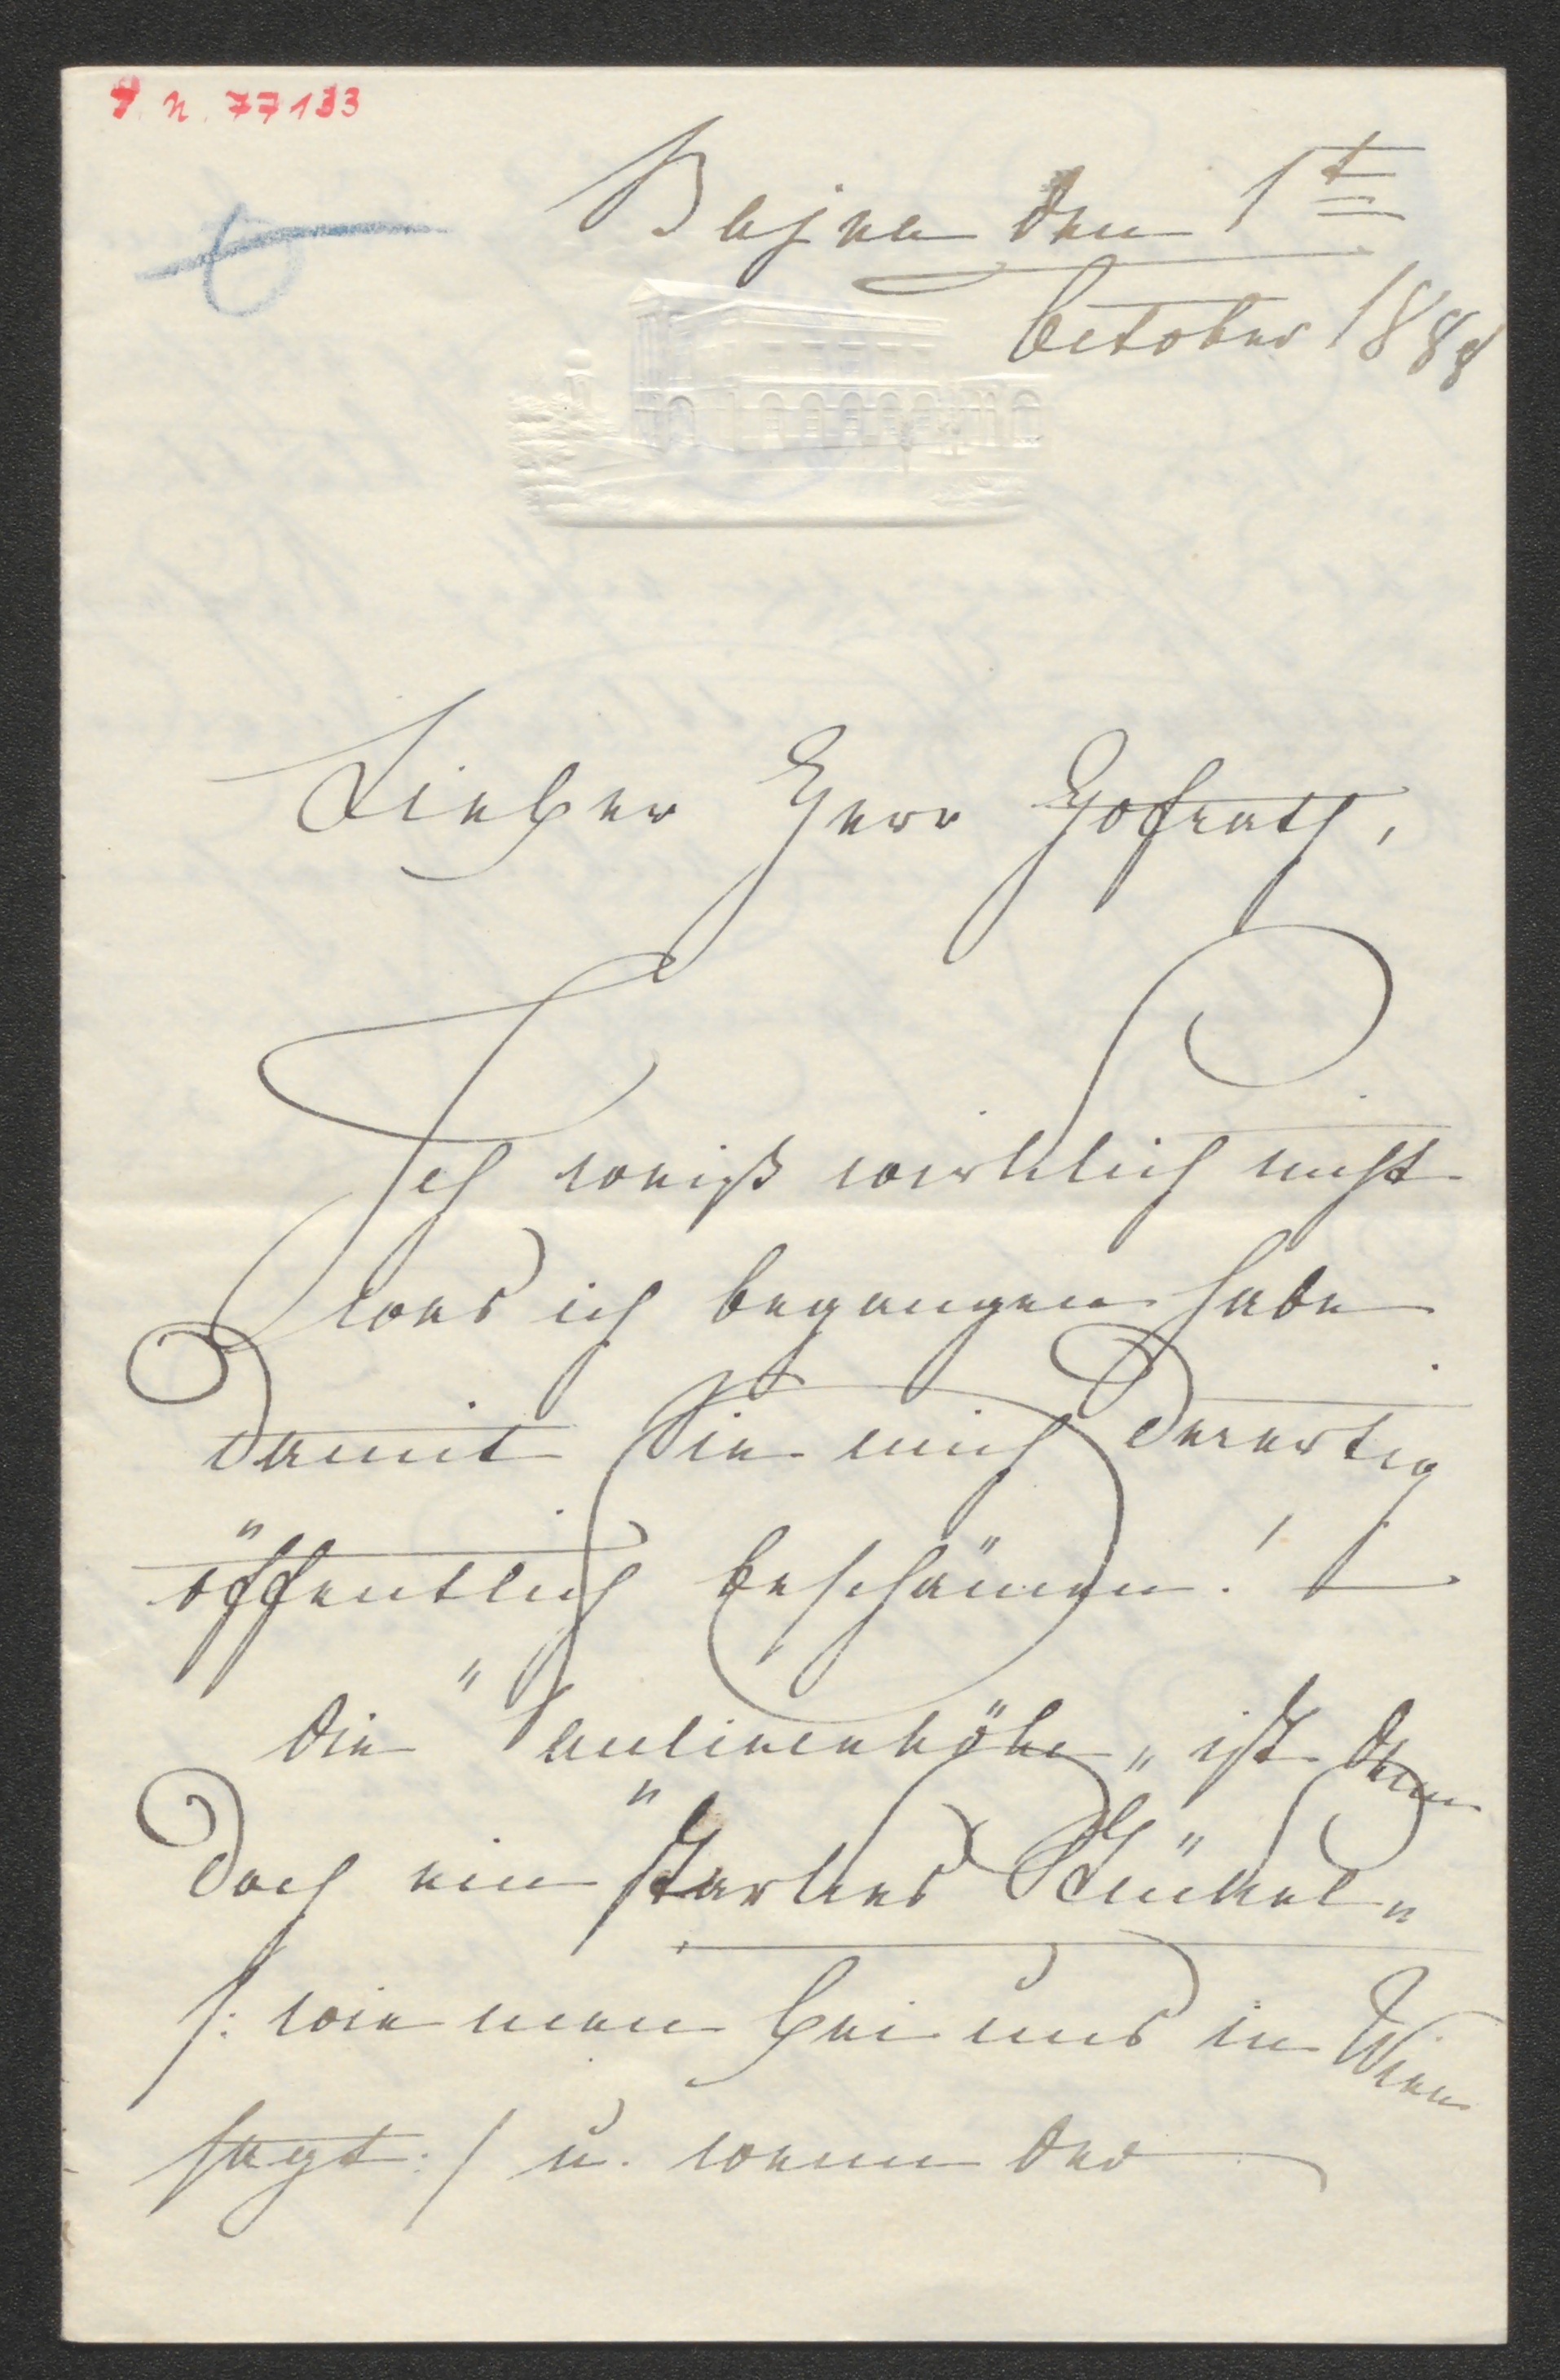 I. N. 77133
Bajna den 1t
October 1888
Lieber Herr Hofrath,
Ich weiß wirklich nicht
was ich begangen habe
damit Sie mich derartig
öffentlich beschämen! –
die "Paulinenhöhe„ ist denn
doch ein "starkes Stückel„
/: wie man bei uns in Wien
sagt :/ u. wenn der